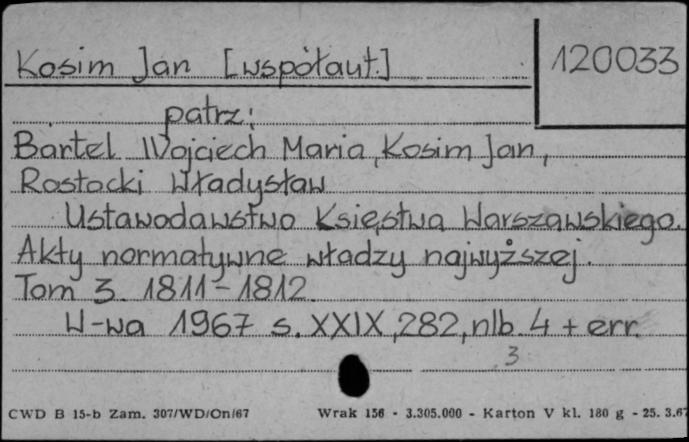 Kosim Jan [współaut.]
120033
patrz:
Bartel Wojciech Maria, Kosim Jan,
Rostocki Władysław
Ustawodawstwo Księstwa Warszawskiego.
Akty normatywne władzy najwyższej.
Tom 3. 1811-1812.
W-wa 1967 s. XXIX, 282, nlb. 4 + err.
3
CWD B 15-b Zam. 307/WD/On/67 Wrak 156 - 3.305.000 - Karton V kl. 180 g - 25. 3.67